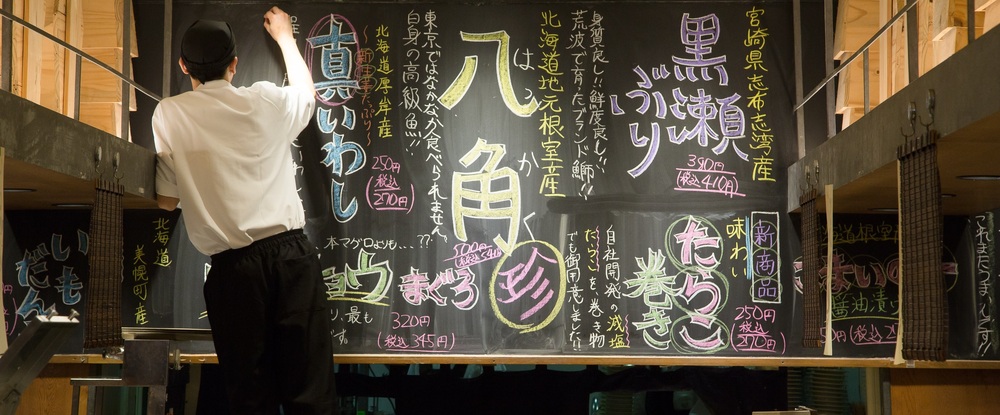 宮崎県志布志湾産
黒瀬
ぶり
380円
(税込410円)
身質良し!!鮮度良し!!
荒波で育ったブランド鰤!!
北海道地元根室産
八角
はっかく
珍
東京ではなかなか食べられません
白身の高級魚!!
北海道厚岸産
真いわし
250円
(税込270円)
新商品
味わい
たらこ
巻き
250円
(税込270円)
自社開発の減塩
たらこを巻き物
でも御用意しました!!
500円
本マグロよりも...??
まぐろ
320円
(税込345円)
北海道
美幌町産
いも
だん
醤油漬